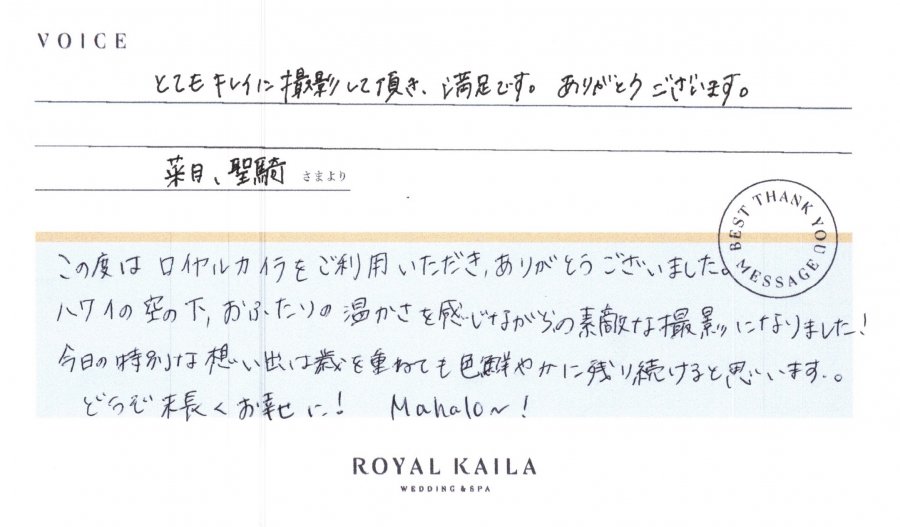 VOICE
とてもキレイに撮影して頂き、満足です。ありがとうございます。
菜月、聖騎 さまより
BEST THANK YOU MESSAGE
この度はロイヤルカイラをご利用いただき、ありがとうございました。
ハワイの空の下、おふたりの温かさを感じながらの素敵な撮影になりました!
今日の特別な想い出は歳を重ねても色鮮やかに残り続けると思います。
どうぞ末長くお幸せに! Mahalo～!
ROYAL KAILA
WEDDING & SPA